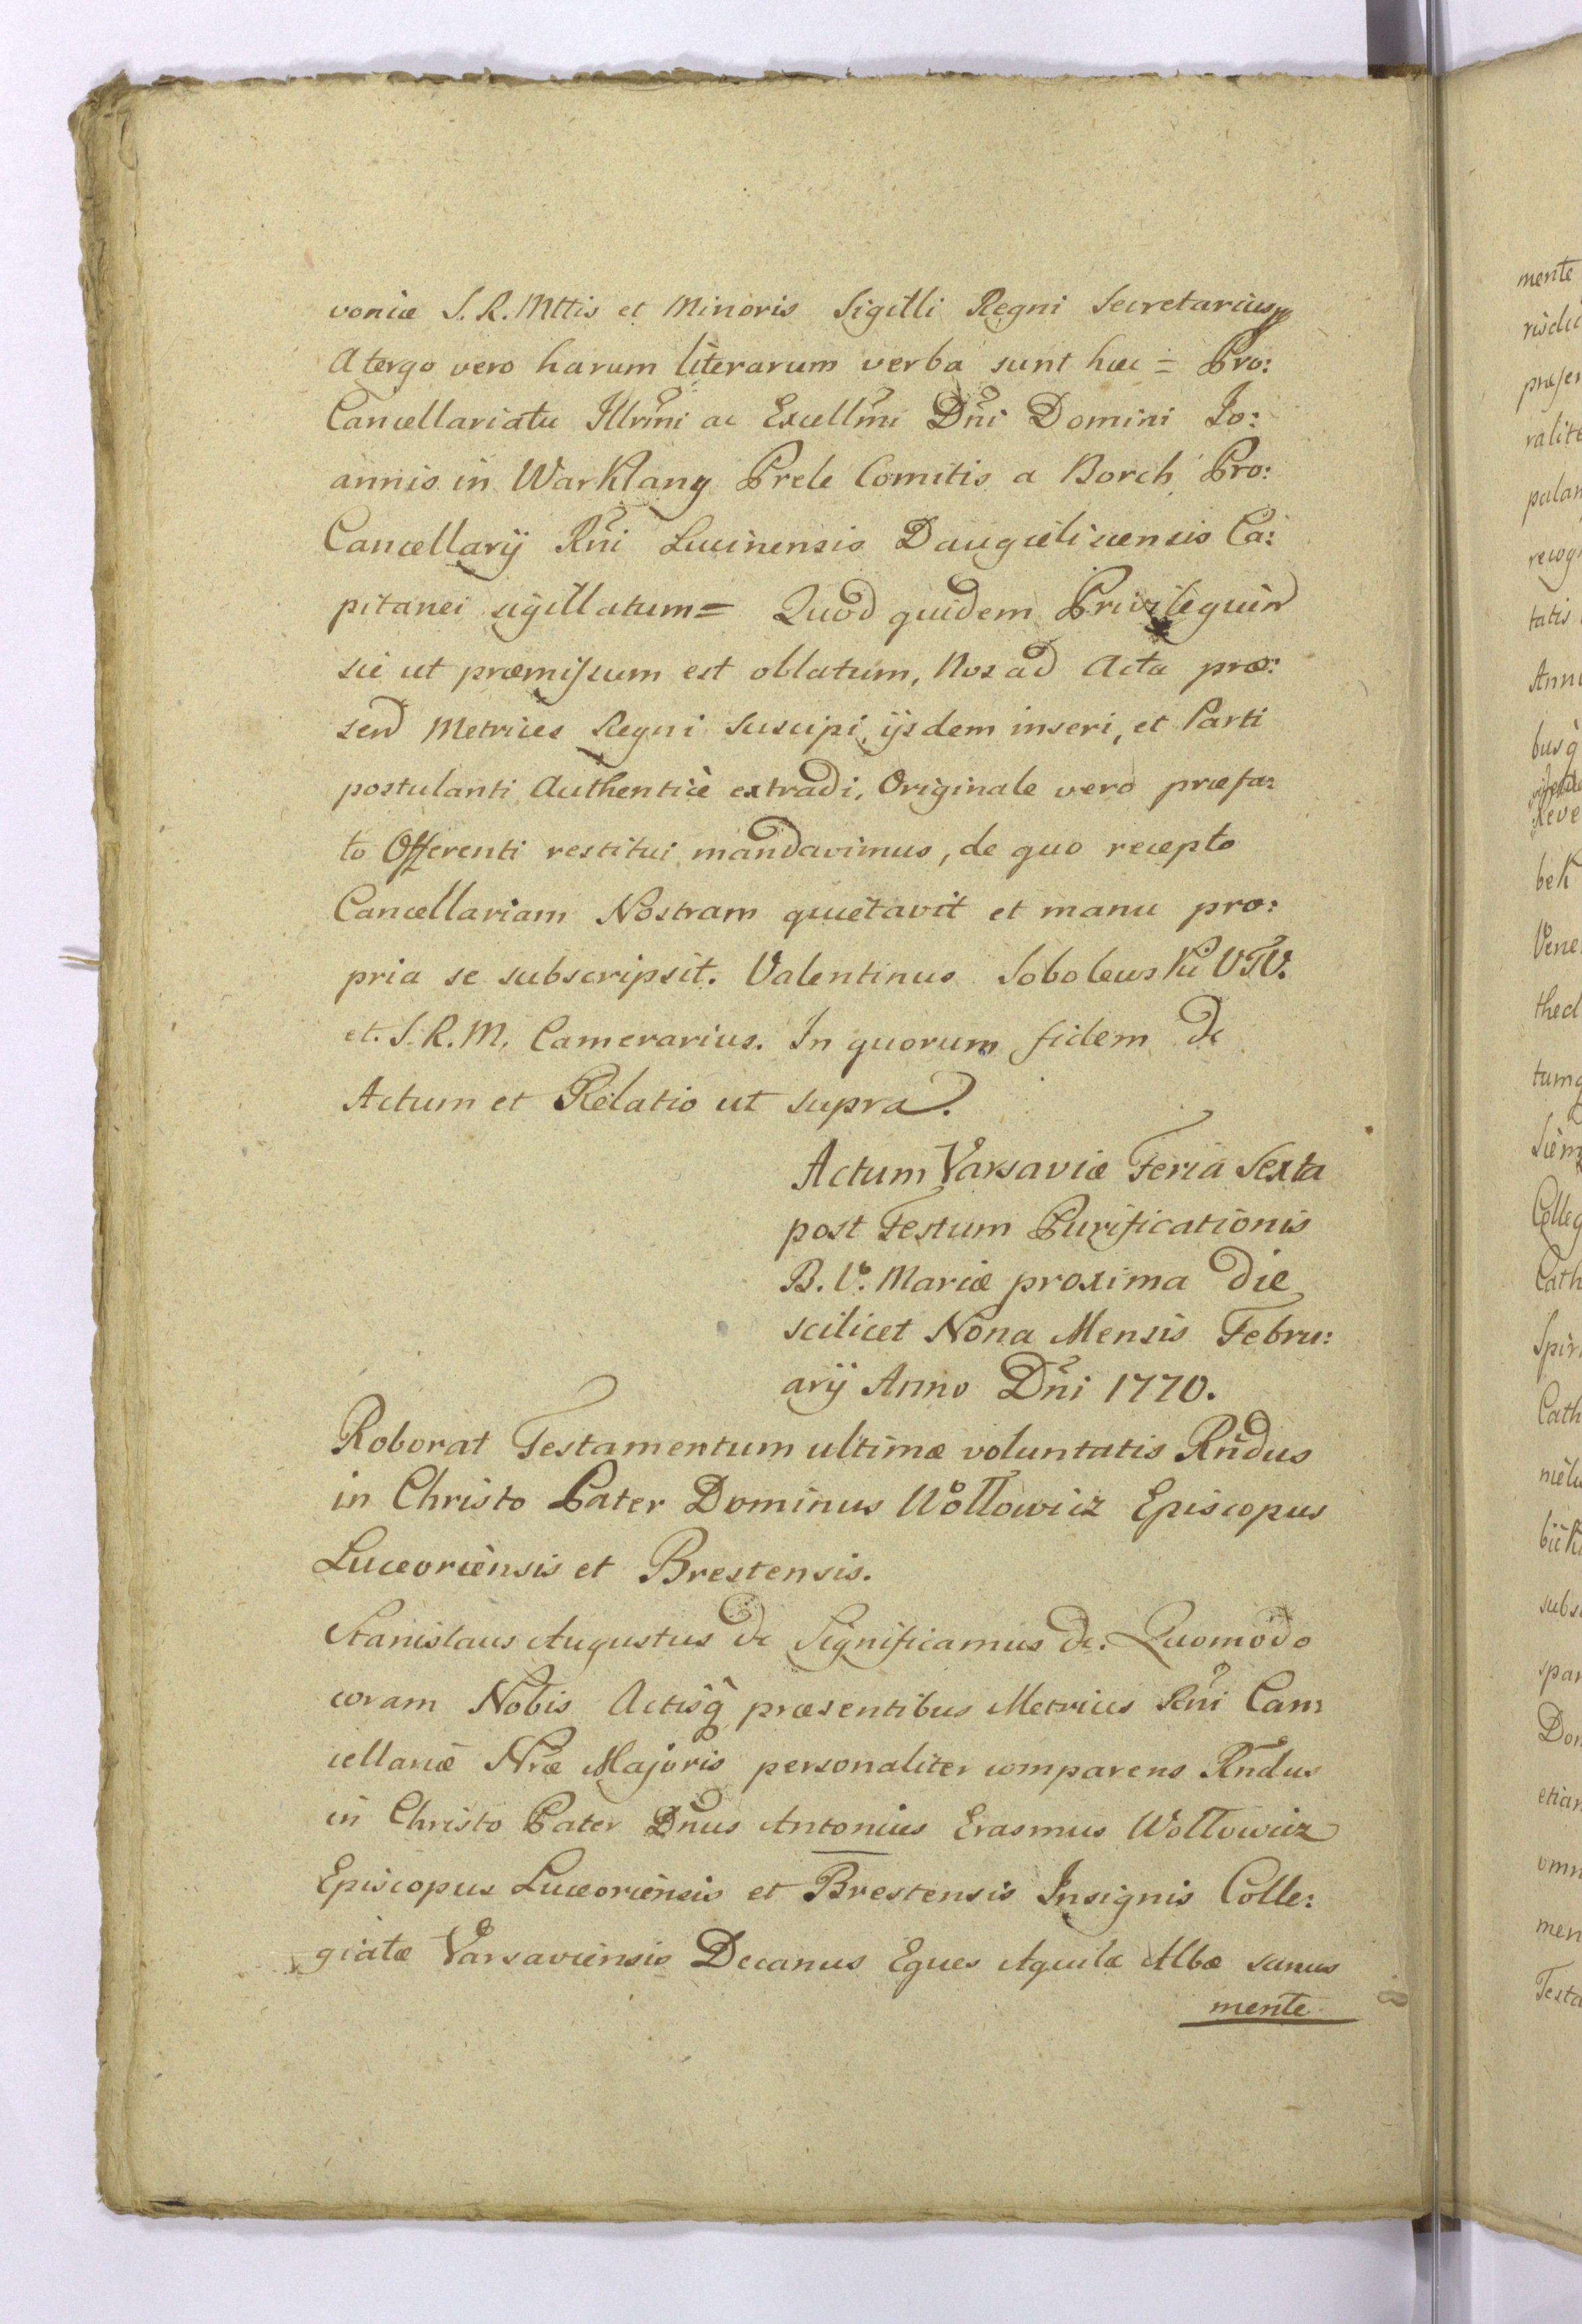 voniæ S. R. Mttis et Minoris Sigilli Regni Secretarius
A tergo vero harum literarum verba sunt hæc = Pro:
Cancellariatu Illrmi ac Excellmi Dni Domini Jo:
annis in Warklany Prele Comitis a Borch Pro:
Cancellarij Rni Lucinensis Daugieliscensis Ca:
pitanei sigillatum = Quod quidem Privilegium
sic ut præmissum est oblatum, Nos ad Acta præ:
sen Metrices Regni suscipi, ijsdem inseri, et Parti
postulanti Authenticè extradi, Originale vero præfa:
to Offerenti restitui mandavimus, de quo recepto
Cancellariam Nostram quietavit et manu pro:
pria se subscripsit. Valentinus Sobolewski V.T.V.
et. S. R. M. Camerarius. In quorum fidem &c
Actum et Relatio ut supra.
Actum Varsaviæ Feria Sexta
post Festum Purificationis
B. V. Mariæ proxima die
scilicet Nona Mensis Febru:
arij Anno Dni 1770.
Roborat Testamentum ultimæ voluntatis Rndus
in Christo Pater Dominus Wołłowicz Episcopus
Luceoriensis et Brestensis.
Stanislaus Augustus &c Significamus &c. Quomodo
coram Nobis Actisq præsentibus Metrices Rni Can:
cellariæ Nræ Majoris personaliter comparens Rndus
in Christo Pater Dnus Antonius Erasmus Wołłowicz
Episcopus Luceoriensis et Brestensis Insignis Colle:
giatæ Varsaviensis Decanus Eques Aquilæ Albæ sanus
mente
mente
palam
tatis
bus
beK
Vene
thed
tumq
Colleg
Cath
Spiri
Cath
subs
Don
etiam
omn
men
Testa